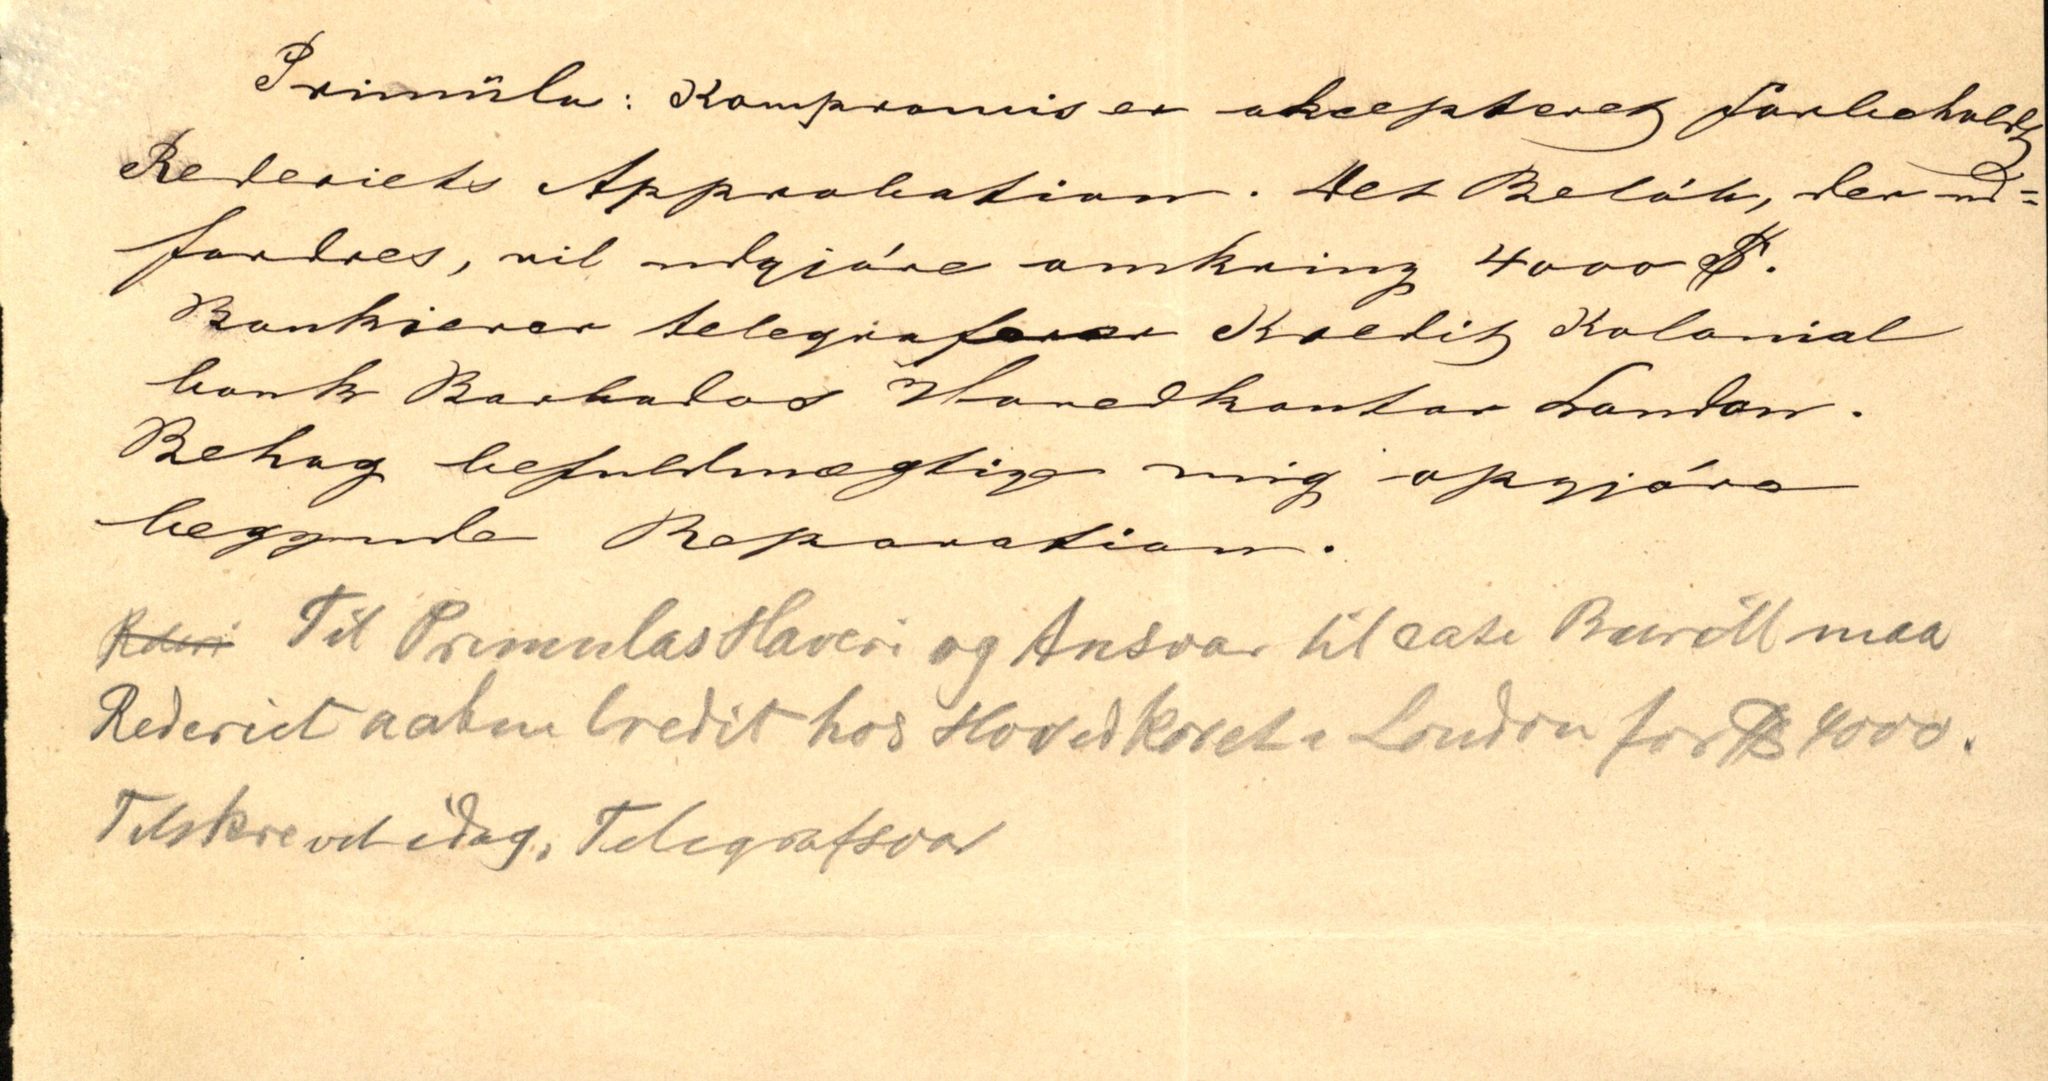 Primüla: Kompromis er akcepteret forbeholdt
Rederiets Approbation. Det Belöb, der ud=
fordres, vil udgjöre omkring 4000 $.
Bankierer telegraferer Kredit Kolonial
bank Barbados Hovedkontor London.
Behag befuldmægtige mig opgjöre
begynde Reparation.
Rederi Til Primulas Haveri og Ansvar til maa
Rederiet aabne Credit hos Hovedkontet i London for $ 4000.
Tilskrevet idag. Telegrafsvar